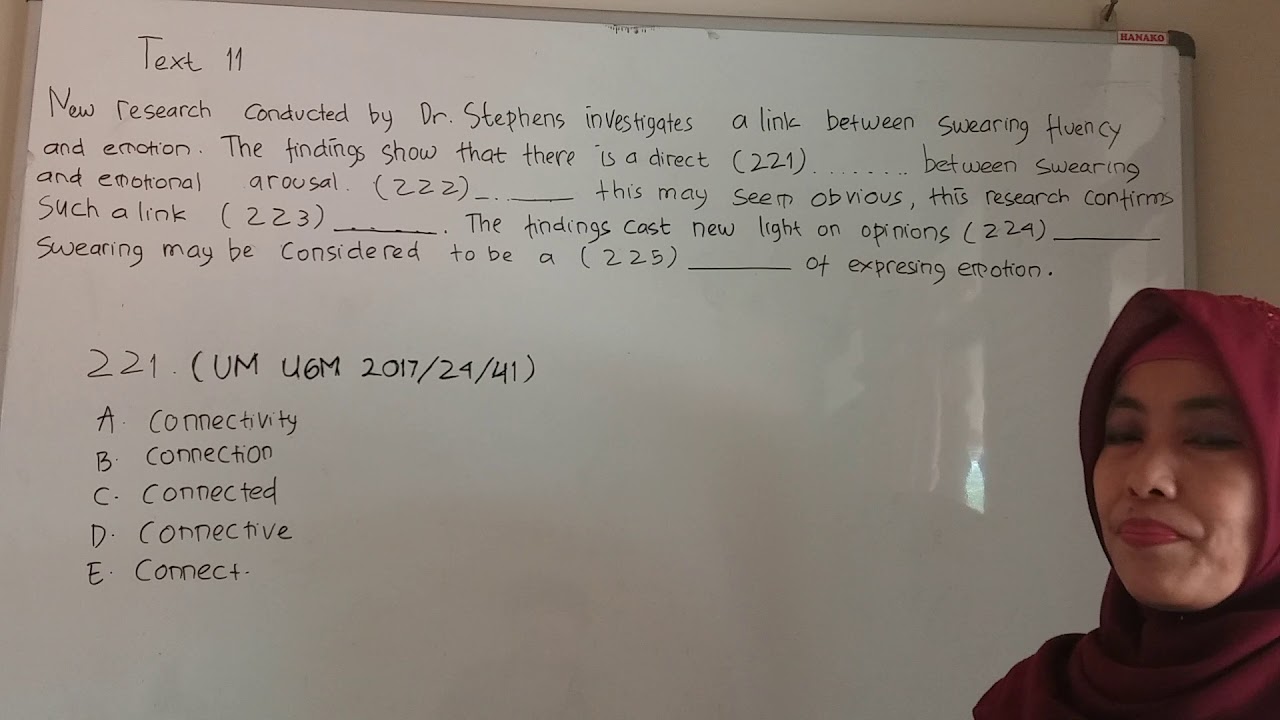 HANAKO
Text 11
New research conducted by Dr. Stephens investigates a link between swearing fluency
and emotion. The findings show that there is a direct (221)........ between swearing
and emotional arousal. (222)_._____ this may seem obvious, this research confirms
such a link (223)_______. The findings cast new light on opinions (224)_______
swearing may be considered to be a (225)_______ of expresing emotion.
221. (UM UGM 2017/24/41)
A. Connectivity
B. Connection
C. Connected
D. Connective
E. Connect.